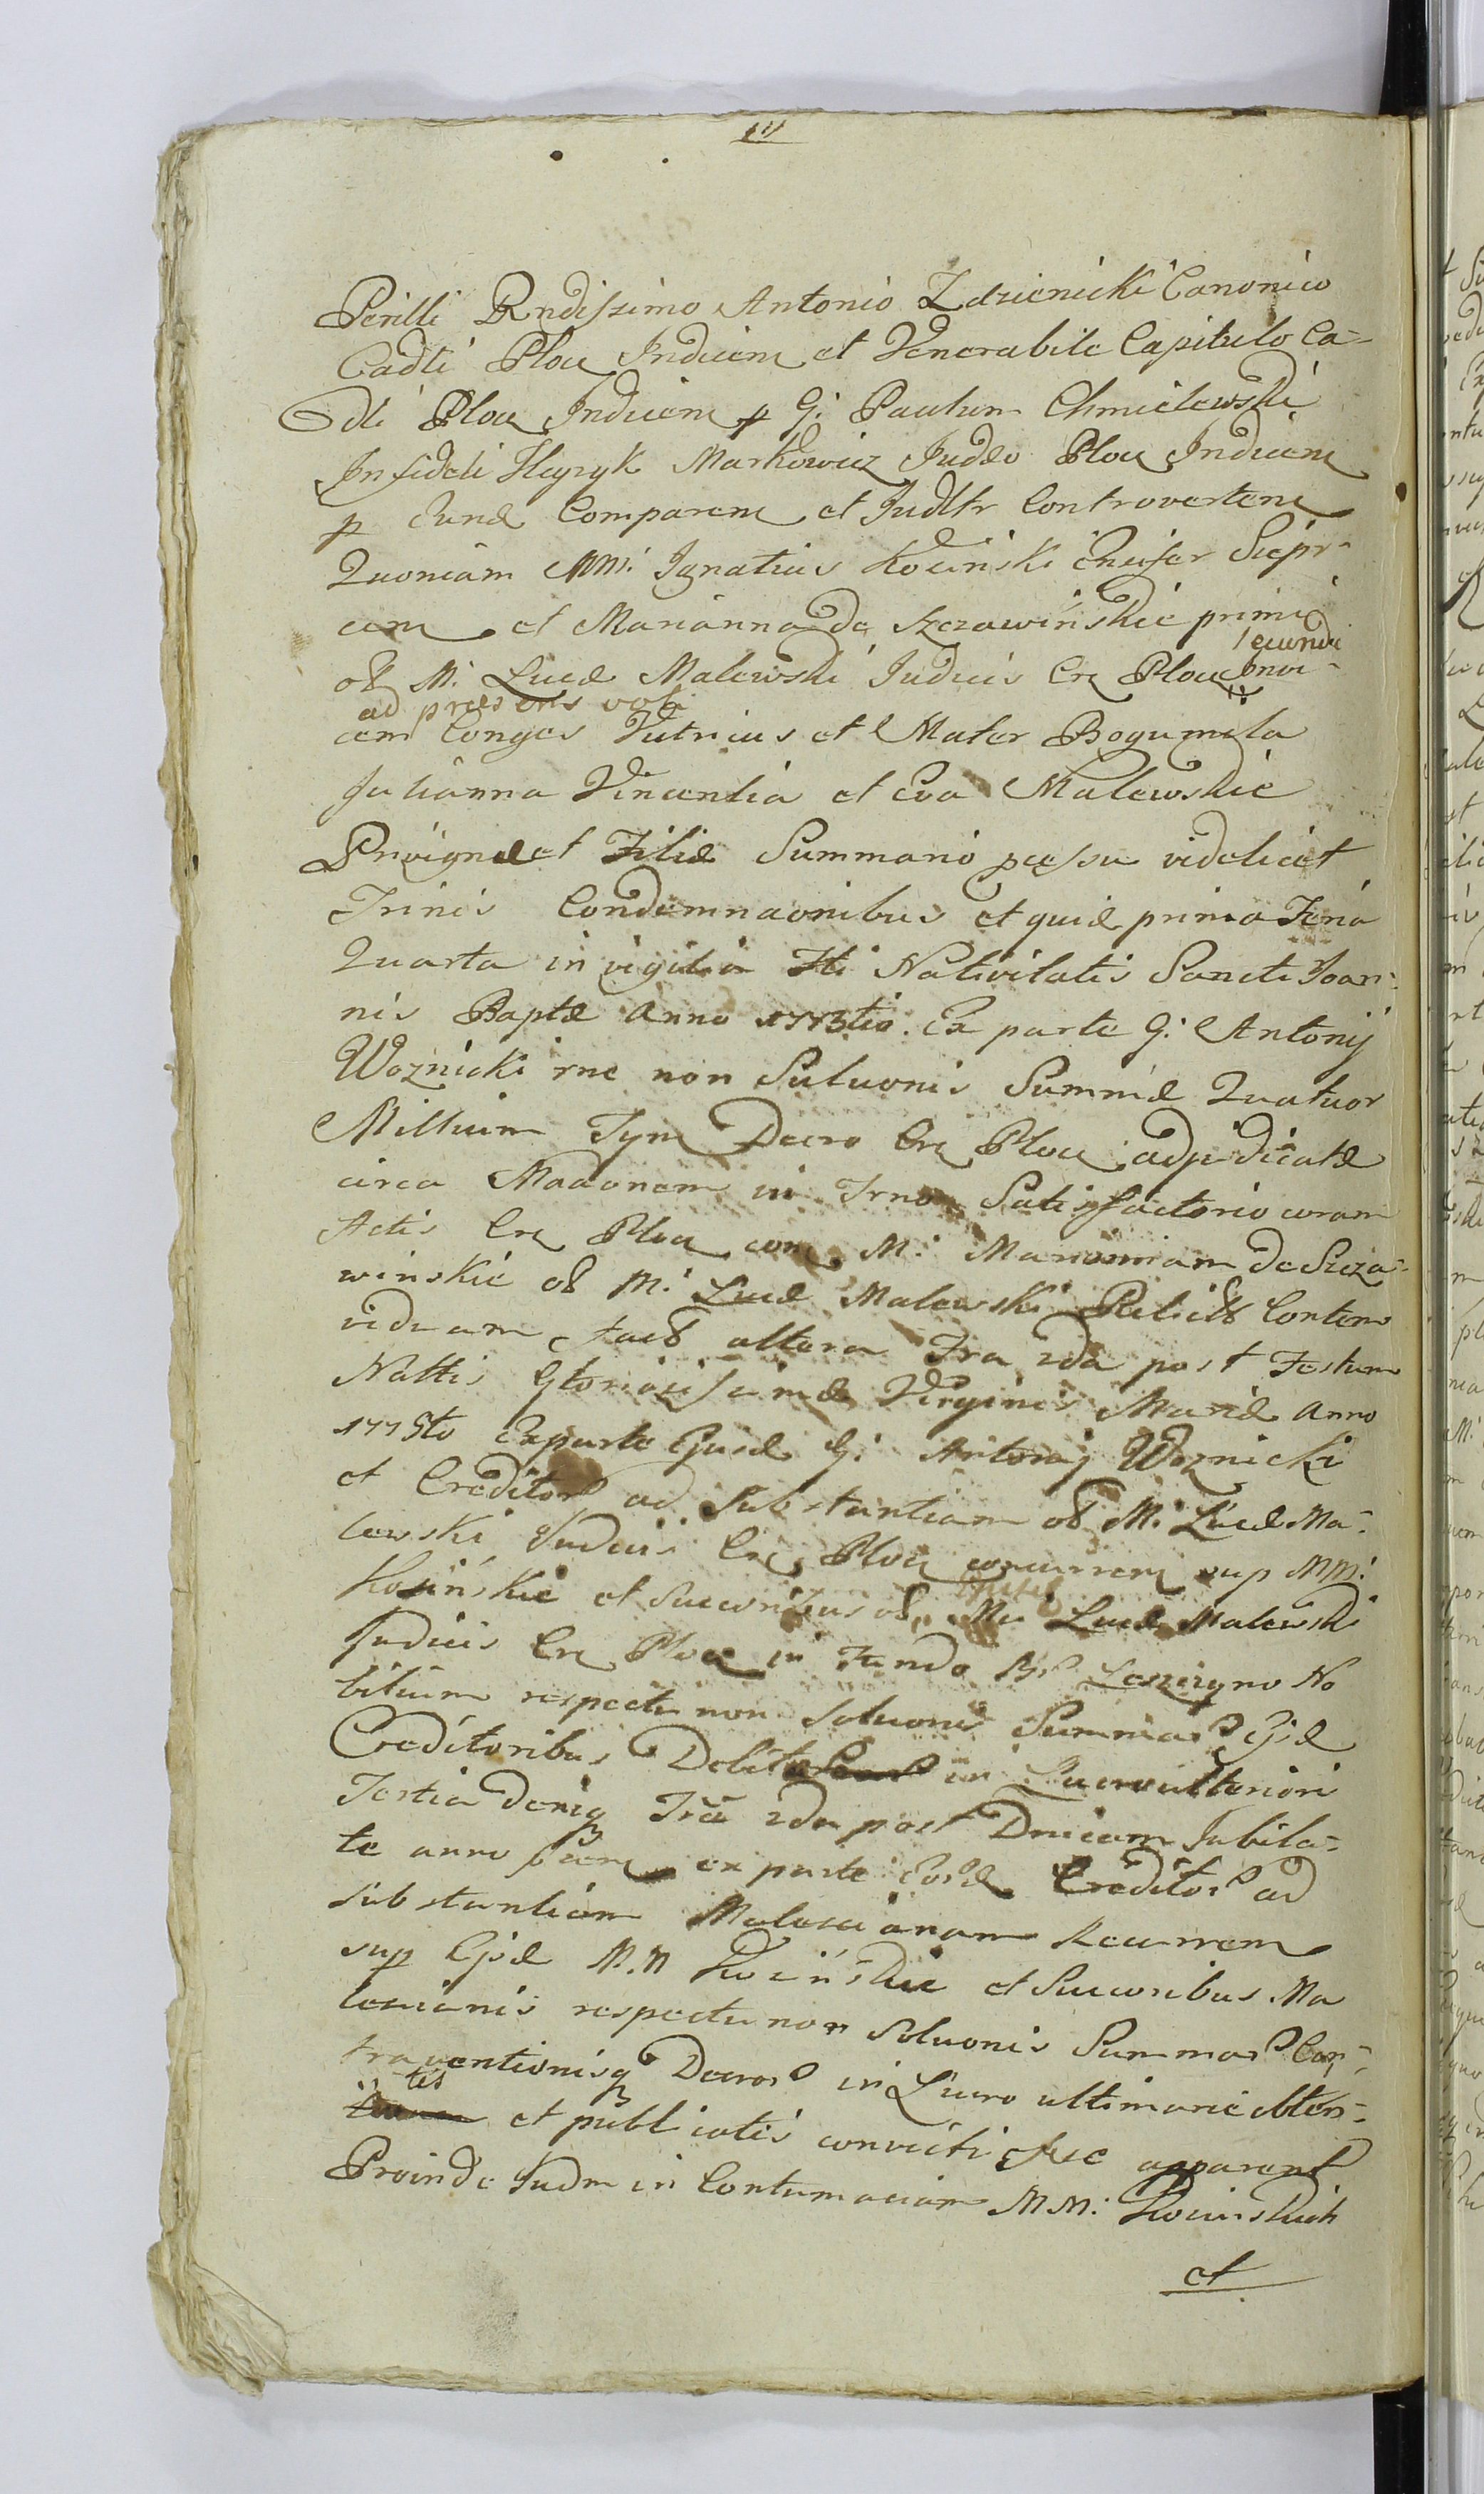 Perilli Rndissimo Antonio Zdzienicki Canonico
Cadli Ploc Inducem et Venerabile Capitulo Ca-
dli Ploc Inducem p G: Paulum Chmielewski
Infideli Heyzyk Markowicz Judeo Ploc Inducem
p eund Comparem et Judltr Controvertem
Quoniam MM: Ignatius Kocinski Ensifer Siepr-
cem et Marianna de Szczawinskie primi
secundi
ol M: Lucæ Malewski Judicis Cre Ploc
ad præsens voti
cem Conges Vitricus et Mater Bogumila
Julianna Vincentia et Eva Malewskie
Privignæ et Filiæ Summario pcessu videlicet
Trinis Condemnaonibus et quid prima Feria
Quarta in vigilia Fti Nativitatis Sancti Joan-
nis Baptæ Anno 1773tio. Ex parte G: Antonij
Woznicki rne non Soluonis Summæ Quatuor
Millium Tym Decro Cre Ploc adjudicatæ
circa Maaonem in Trno Satisfactorio coram
Actis Cre Ploc con M: Mariannam de Szcza-
winskie ol M: Lucæ Malewski Contem
viduam altera Fra 2da post Festum
Nattis Gloriosissimæ Virginis Mariæ Anno
1775to Exparte Ejusd G: Antonij Woznicki
et Creditor ad Substantiam ol M: Lucæ Ma-
lewski Judicis Cre Ploc concurrem sup MM:
Kosinskie et Sucoribus ol M: Lucæ Malewski
Judicis Cre Ploc in Fundo Leszczyno No
bilium respectu non Soluonis Summar Ejsd
Creditoribus Debitar in Lucro ulteriori
Tertia deniq Fra 2da post Dnicam Jubila-
te anno ex parte Eord Creditor ad
substantiam Malewianam Recurrem
sup Ejsd M.M Kocinskie et Sucoribus Ma
lewianis respectu non Soluonis Summar Con-
traventionisq Decror in Lucro ultimarie obten-
tis
et publicatis convicti esse apparent
Proinde Judm in Contumaciam MM: Kocinskich
et